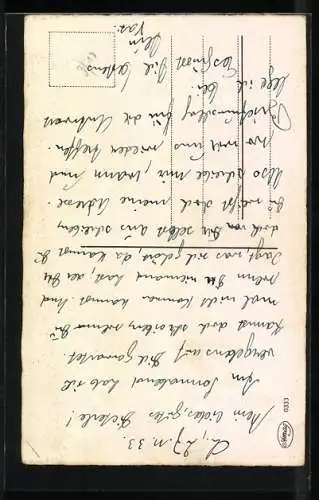 27. 11. 33.
Mein liebes, gutes
Am Sonnabend hab ich
vergebens auf Dich gewartet.
Kannst doch schreiben, wenn Du
mal nicht kommen kannst. Und
wenn Du niemand hast, der Dir
sagt, was sich gehört, da kannst Du
doch von Dir selbst aus schreiben,
Du weißt doch meine Adresse.
Also schreibe mir, wann und
wo wir uns wieder treffen.
Briefumschlag für die Antwort
lege ich bei.
Es grüßt Dich bestens
Dein
0333